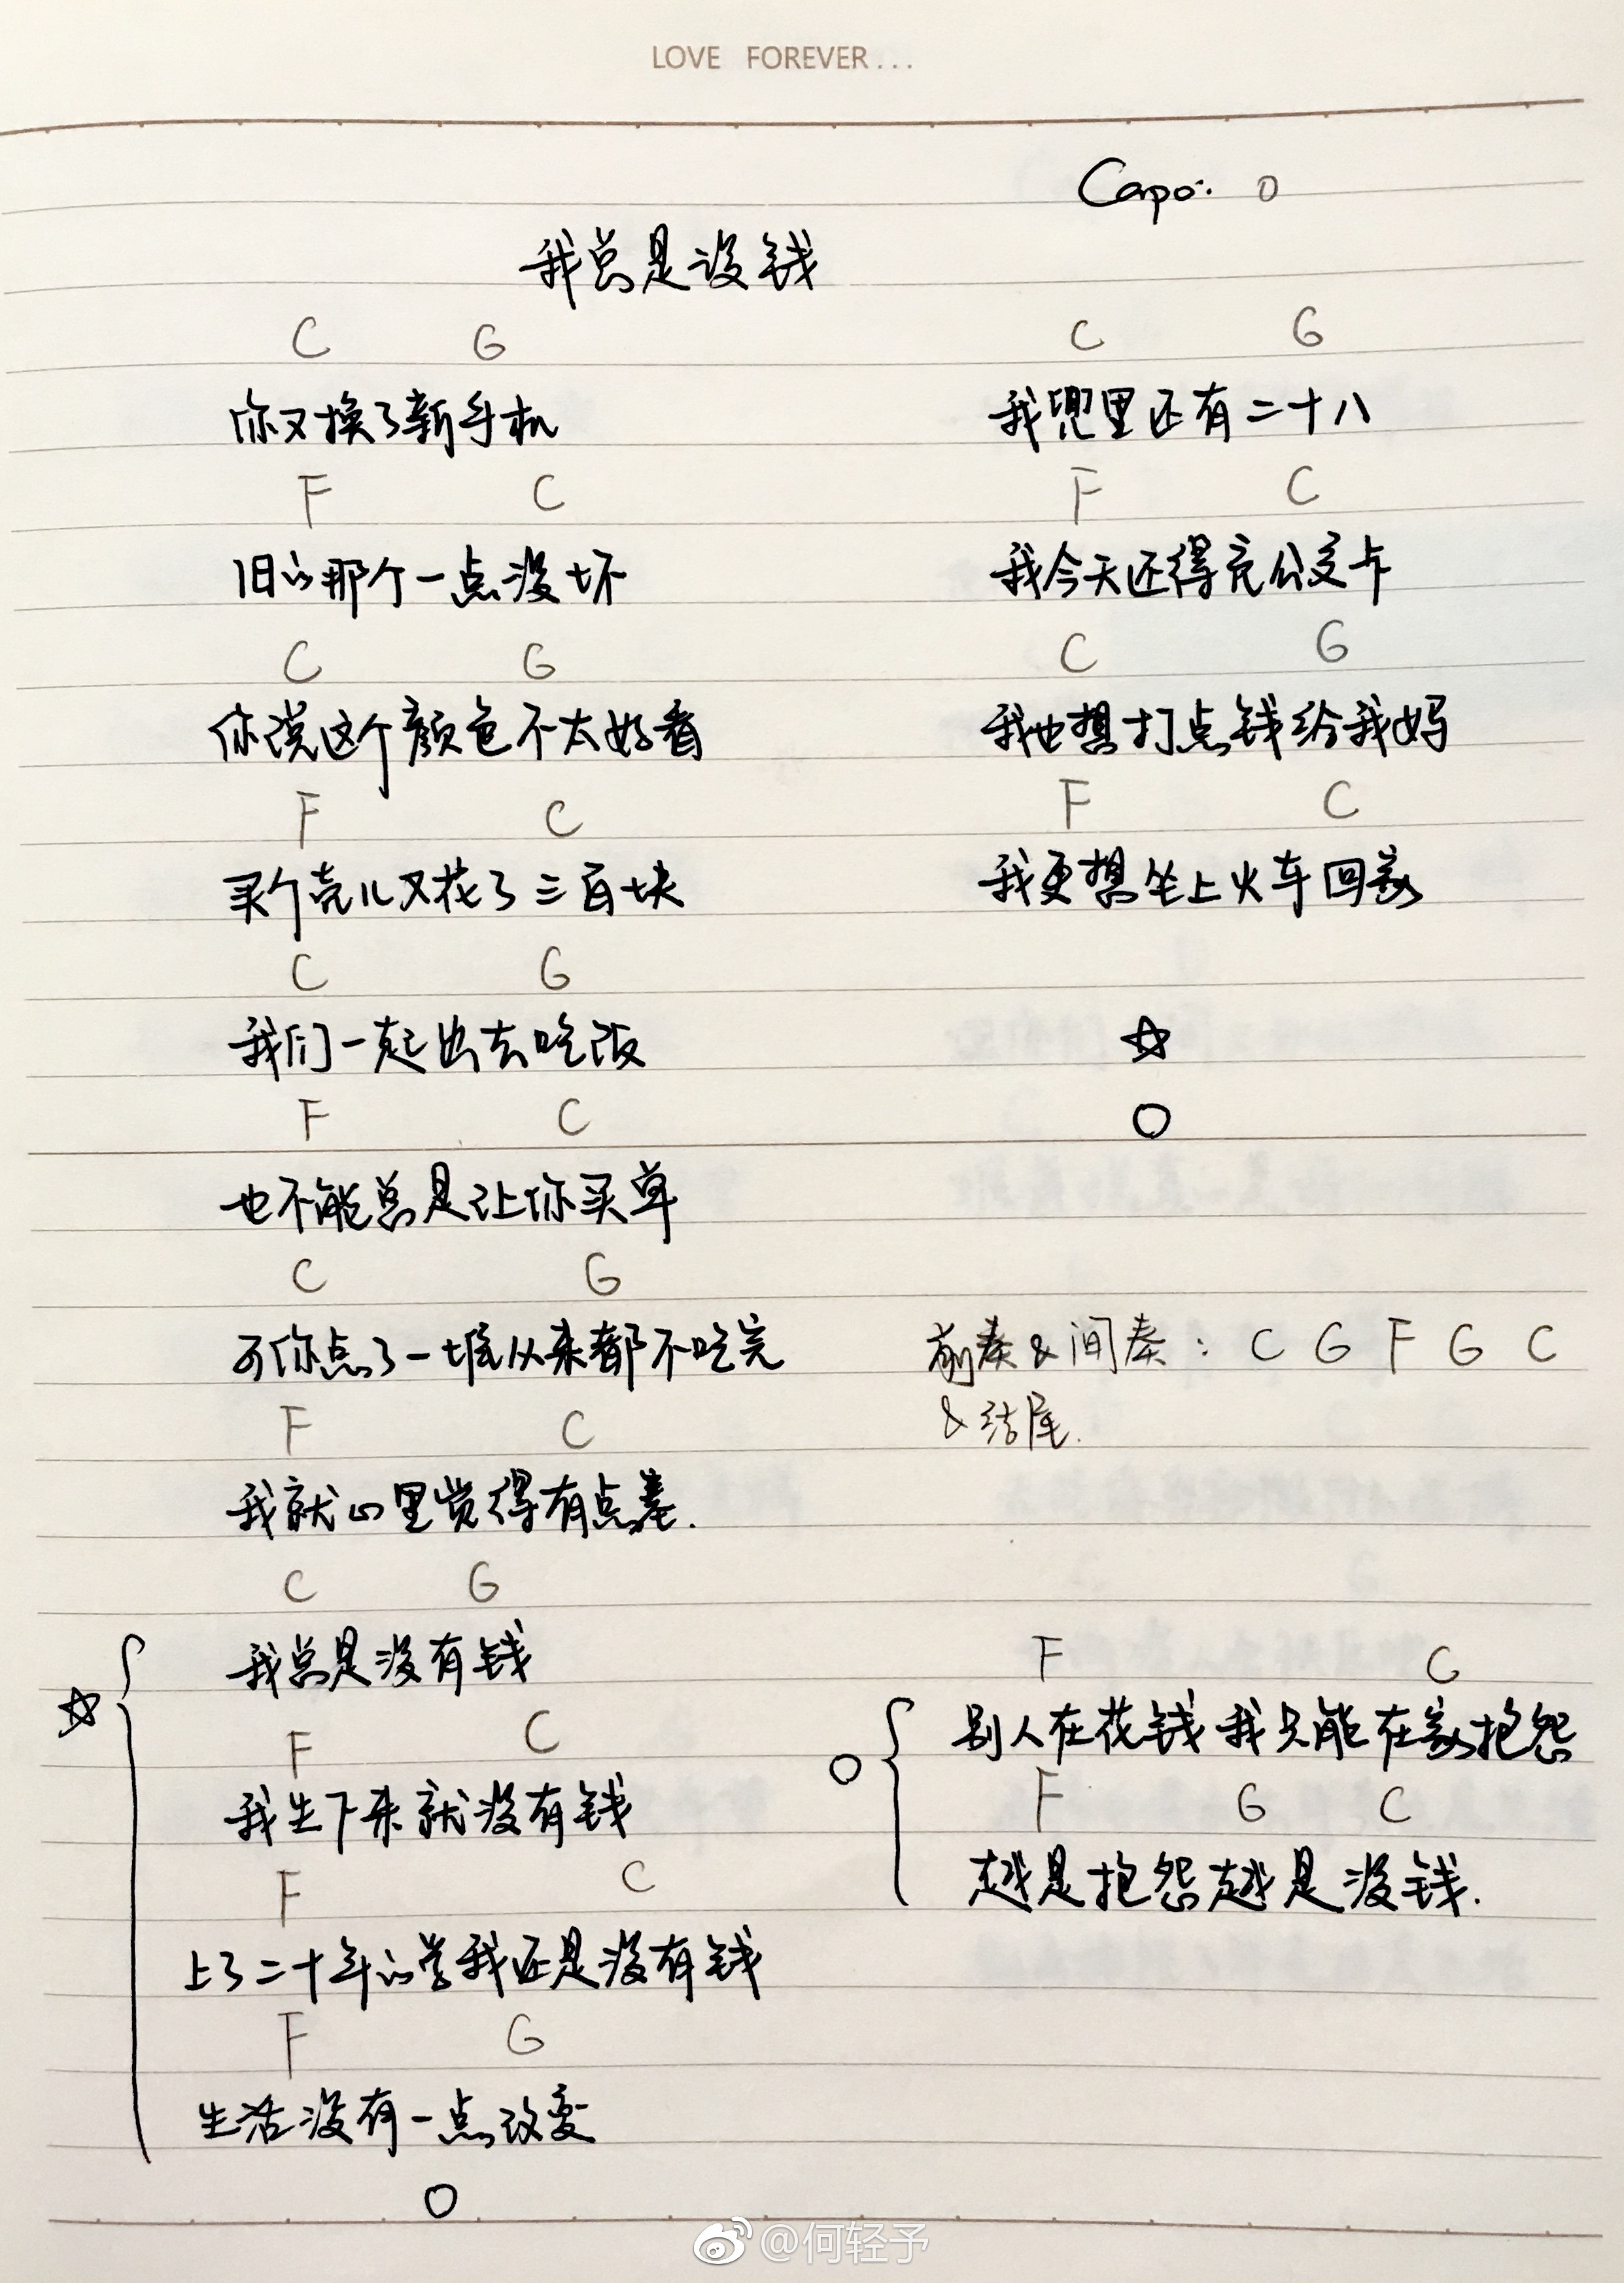 LOVE FOREVER...
Capo: 0
我总是没钱
C G
你又换了新手机
F C
旧的那个一点没坏
C G
你说这个颜色不太好看
F C
买个壳儿又花了三百块
C G
我们一起出去吃饭
F C
也不能总是让你买单
C G
可你点了一堆从来都不吃完
F C
我就心里觉得有点羡.
C G
我总是没有钱
F C
我生下来就没有钱
F C
上了二十年的学我还是没有钱
F G
生活没有一点改变
C G
我兜里还有二十八
F C
我今天还得充公交卡
C G
我也想打点钱给我妈
F C
我更想坐上火车回家
前奏&间奏: C G F G C
&结尾.
F C
别人在花钱我只能在家抱怨
F G C
越是抱怨越是没钱.
@何轻予